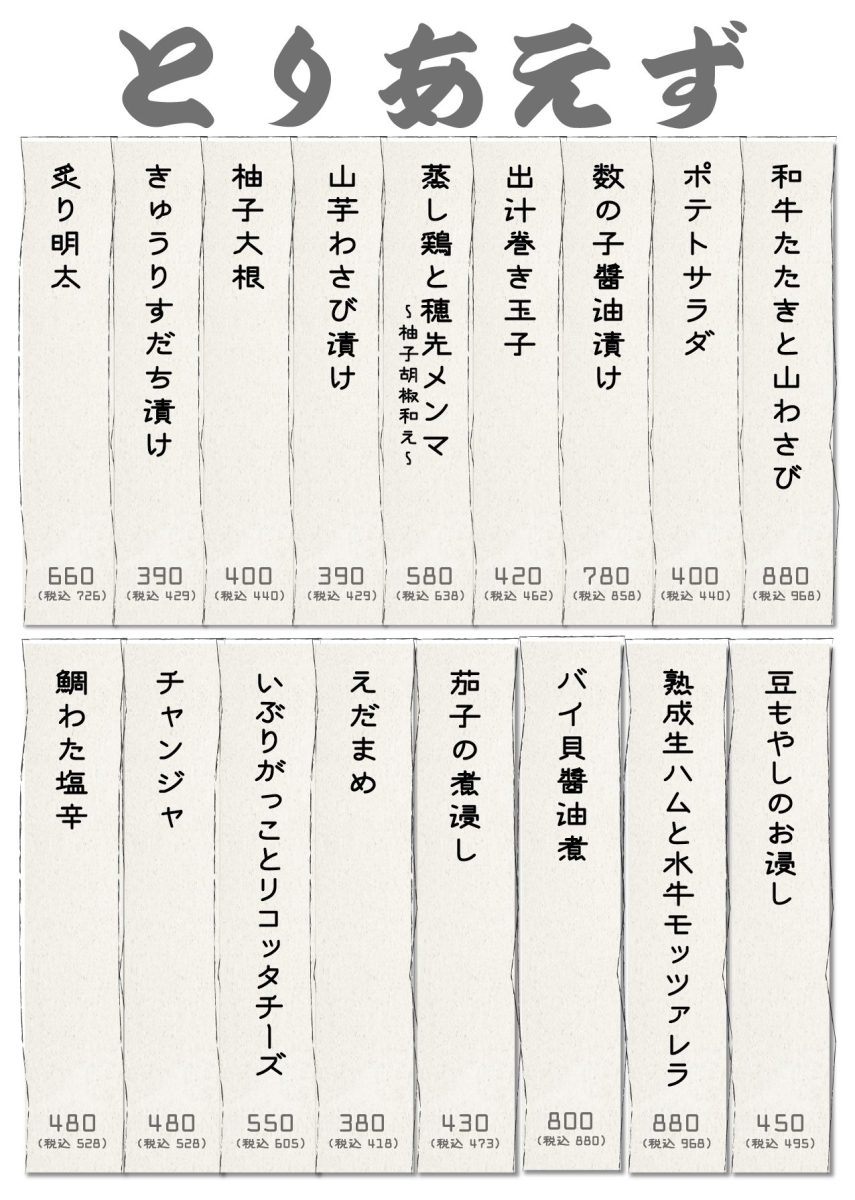 とりあえず
和牛たたきと山わさび
880
(税込 968)
ポテトサラダ
400
(税込 440)
数の子醤油漬け
780
(税込 858)
出汁巻き玉子
420
(税込 462)
蒸し鶏と穂先メンマ
～柚子胡椒和え～
580
(税込 638)
山芋わさび漬け
390
(税込 429)
柚子大根
400
(税込 440)
きゅうりすだち漬け
390
(税込 429)
炙り明太
660
(税込 726)
豆もやしのお浸し
450
(税込 495)
熟成生ハムと水牛モッツァレラ
880
(税込 968)
バイ貝醤油煮
800
(税込 880)
茄子の煮浸し
430
(税込 473)
えだまめ
380
(税込 418)
いぶりがっことリコッタチーズ
550
(税込 605)
チャンジャ
480
(税込 528)
鯛わた塩辛
480
(税込 528)